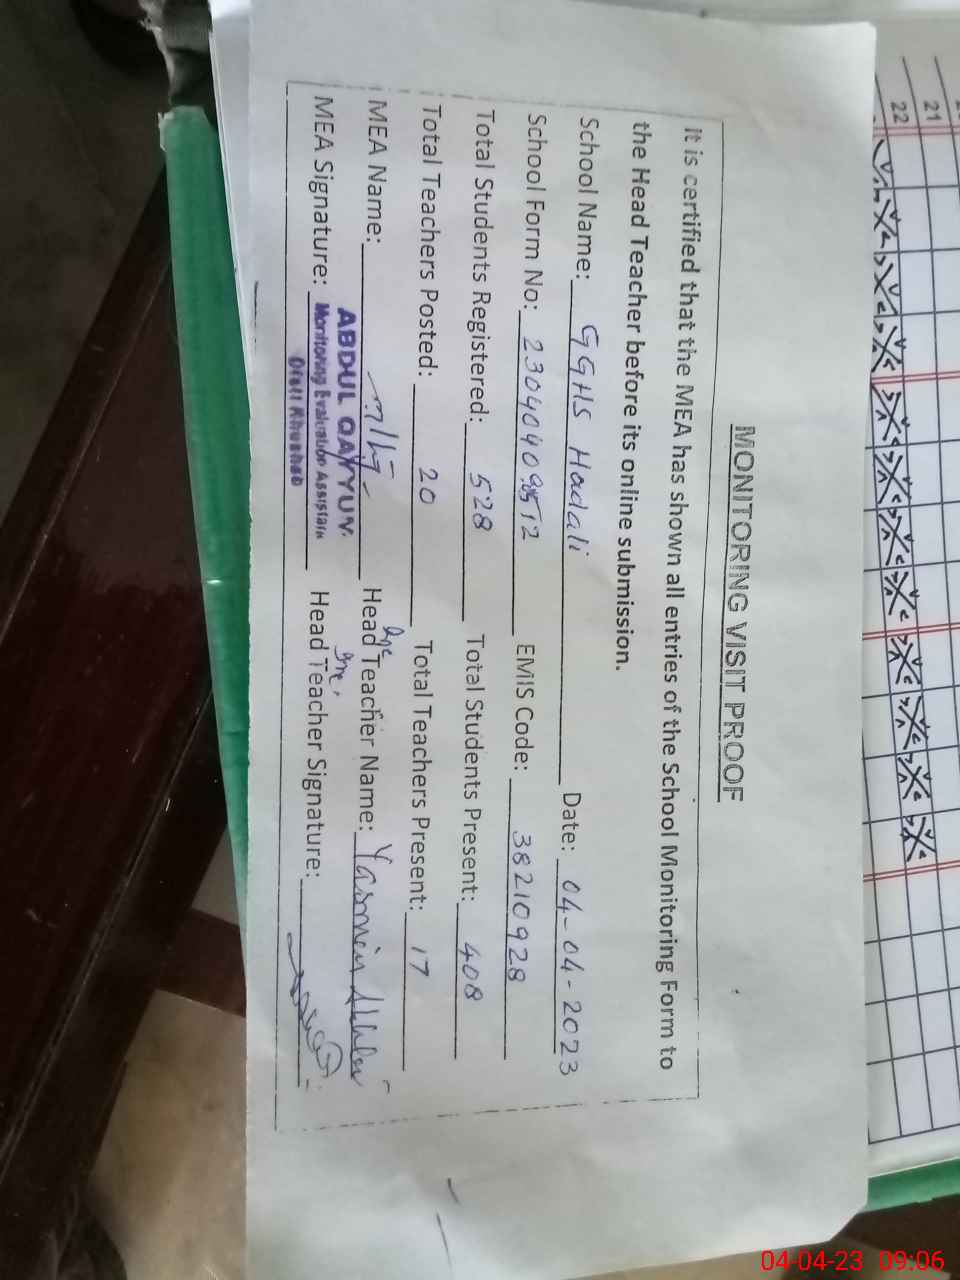 MONITORING VISIT PROOF
It is certified that the MEA has shown all entries of the School Monitoring Form to
the Head Teacher before its online submission.
School Name: GGHS Hadali Date: 04-04-2023
School Form No: EMIS Code: 38210928
Total Students Registered: 528 Total Students Present: 408
Total Teachers Posted: 20 Total Teachers Present: 17
MEA Name: Head Teacher Name: Yasmin
ABDUL QAYYUM
MEA Signature: Head Teacher Signature:
Monitoring Evaluation Assistan
Distt Khushab
21
22
04-04-23 09:06